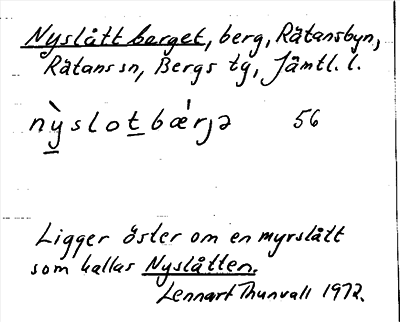 Nyslåttberget, berg, Rätansbyn,
Rätans sn, Bergs tg, Jämtl. l.
nỳslotbǽrjə 56
Ligger öster om en myrslått
som kallas Nyslåtten.
Lennart Thunvall 1972.